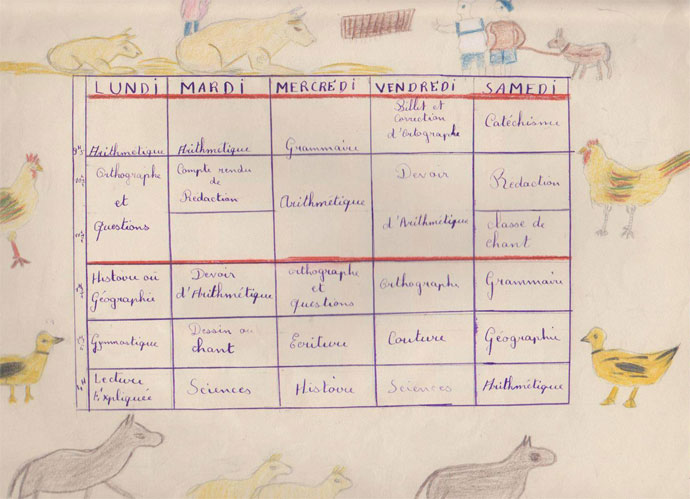 LUNDI MARDI MERCRÉDI VENDRÉDI SAMEDI
Billet et
Correction
d'Ortographe
Catéchisme
Arithmétique Arithmétique Grammaire
Orthographe
et
Questions
Compte rendu
de
Rédaction
Arithmétique
Devoir
d'Arithmétique
Rédaction
classe de
chant
Histoire ou
Géographie
Devoir
d'Arithmétique
orthographe
et
questions
Orthographe
Grammaire
Gymnastique
Dessin ou
chant
Ecriture
Couture
Géographie
Lecture
Expliquée
Sciences
Histoire
Sciences
Arithmétique